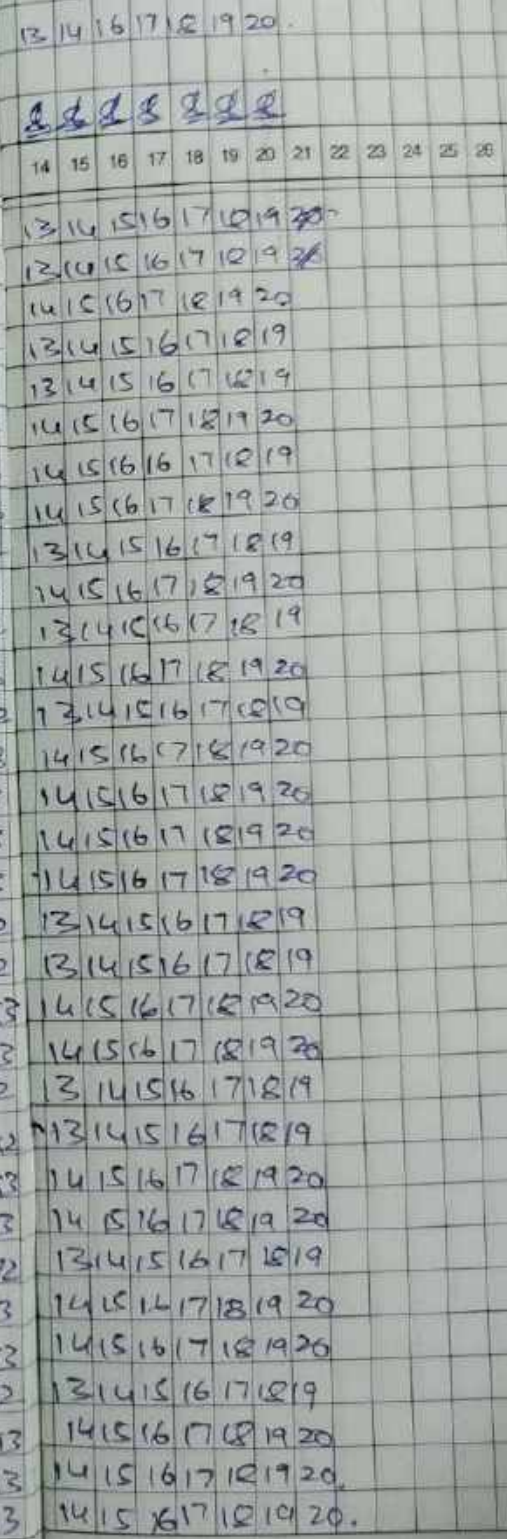 13 14 16 17 18 19 20
14 15 16 17 18 19 20 21 22 23 24 25 26
13 14 15 16 17 18 19
13 14 15 16 17 18 19
14 15 16 17 18 19 20
13 14 15 16 17 18 19
13 14 15 16 17 18 19
14 15 16 17 18 19 20
14 15 16 16 17 18 19
14 15 16 17 18 19 20
13 14 15 16 17 18 19
14 15 16 17 18 19 20
13 14 15 16 17 18 19
14 15 16 17 18 19 20
2 13 14 15 16 17 18 19
3 14 15 16 17 18 19 20
14 15 16 17 18 19 20
14 15 16 17 18 19 20
14 15 16 17 18 19 20
13 14 15 16 17 18 19
2 13 14 15 16 17 18 19
3 14 15 16 17 18 19 20
3 14 15 16 17 18 19 20
2 13 14 15 16 17 18 19
12 13 14 15 16 17 18 19
13 14 15 16 17 18 19 20
3 14 15 16 17 18 19 20
12 13 14 15 16 17 18 19
3 14 15 16 17 18 19 20
3 14 15 16 17 18 19 20
2 13 14 15 16 17 18 19
13 14 15 16 17 18 19 20
3 14 15 16 17 18 19 20.
3 14 15 16 17 18 19 20.